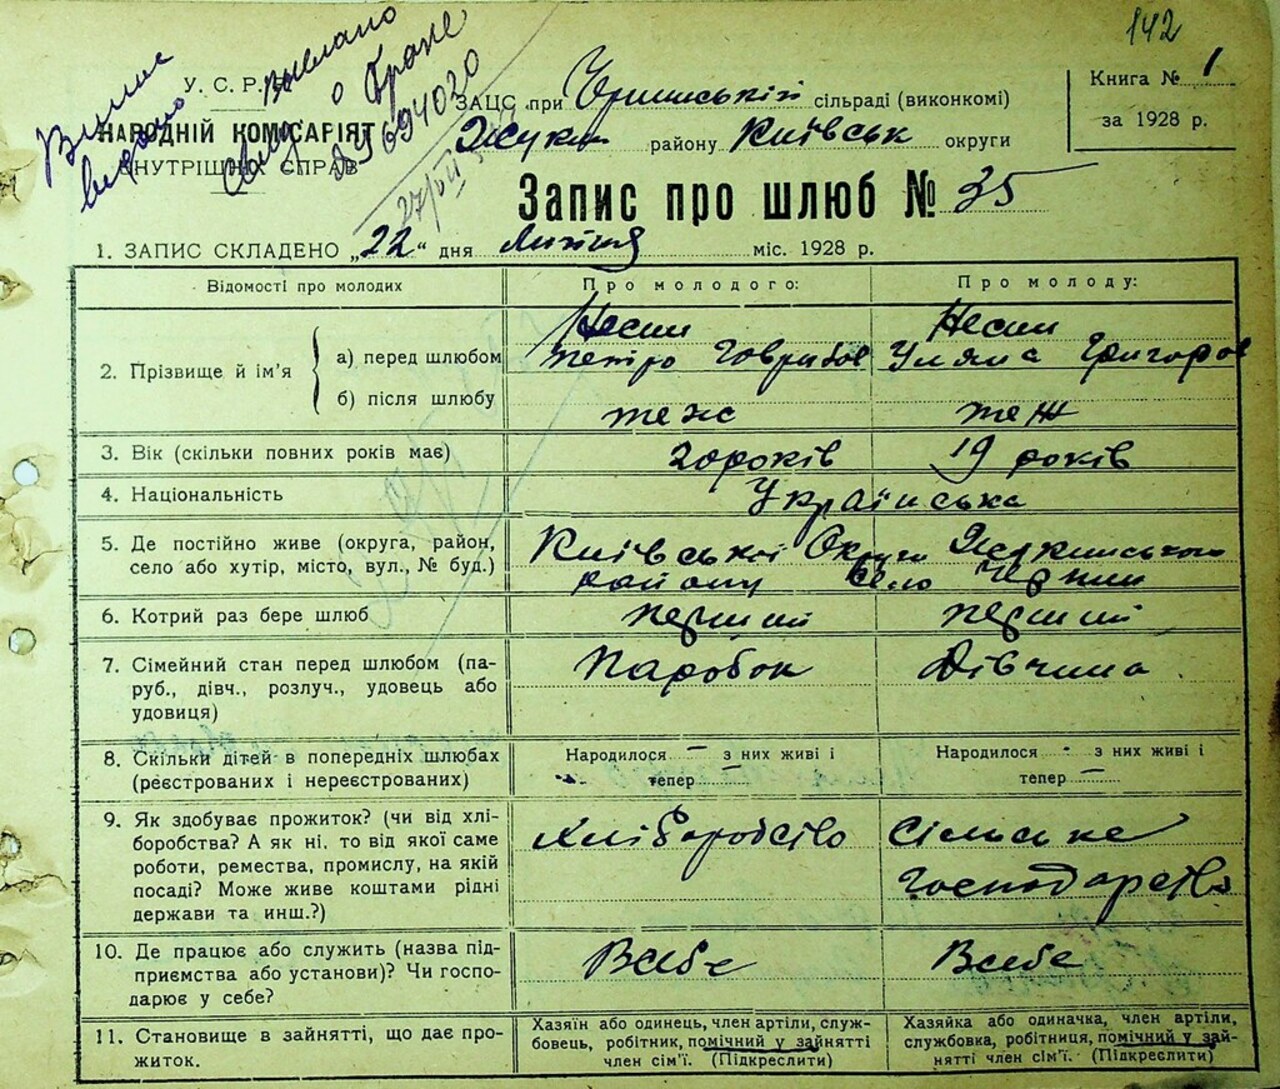 142
У. С. Р. Р.
НАРОДНІЙ КОМІСАРІЯТ
ВНУТРІШНІХ СПРАВ
Выслано
о браке
694020
27/VII
ЗАЦС при сільраді (виконкомі)
району Київськ округи
Книга № 1
за 1928 р.
Запис про шлюб № 35
1. ЗАПИС СКЛАДЕНО „22“ дня Липня міс. 1928 р.
Відомості про молодих
Про молодого:
Про молоду:
2. Прізвище й ім'я
а) перед шлюбом
Несин
Петро Говрилов
Несин
Уляна Григоров
б) після шлюбу
теж
теж
3. Вік (скільки повних років має)
20 років
19 років
4. Національність
Українська
5. Де постійно живе (округа, район,
село або хутір, місто, вул., № буд.)
Київської Округи
району Село Чернин
6. Котрий раз бере шлюб
перший
перший
7. Сімейний стан перед шлюбом (па-
руб., дівч., розлуч., удовець або
удовиця)
Паробок
Дівчина
8. Скільки дітей в попередніх шлюбах
(реєстрованих і нереєстрованих)
Народилося – з них живі і
тепер –
Народилося - з них живі і
тепер –
9. Як здобуває прожиток? (чи від хлі-
боробства? А як ні, то від якої саме
роботи, ремества, промислу, на якій
посаді? Може живе коштами рідні
держави та инш.?)
Хліборобство
Сільське
господарство
10. Де працює або служить (назва під-
приємства або установи)? Чи госпо-
дарює у себе?
Всебе
Всебе
11. Становище в зайнятті, що дає про-
житок.
Хазяїн або одинець, член артіли, служ-
бовець, робітник, помічний у зайнятті
член сім'ї. (Підкреслити)
Хазяйка або одиначка, член артіли,
службовка, робітниця, помічний у зай-
нятті член сім'ї. (Підкреслити)